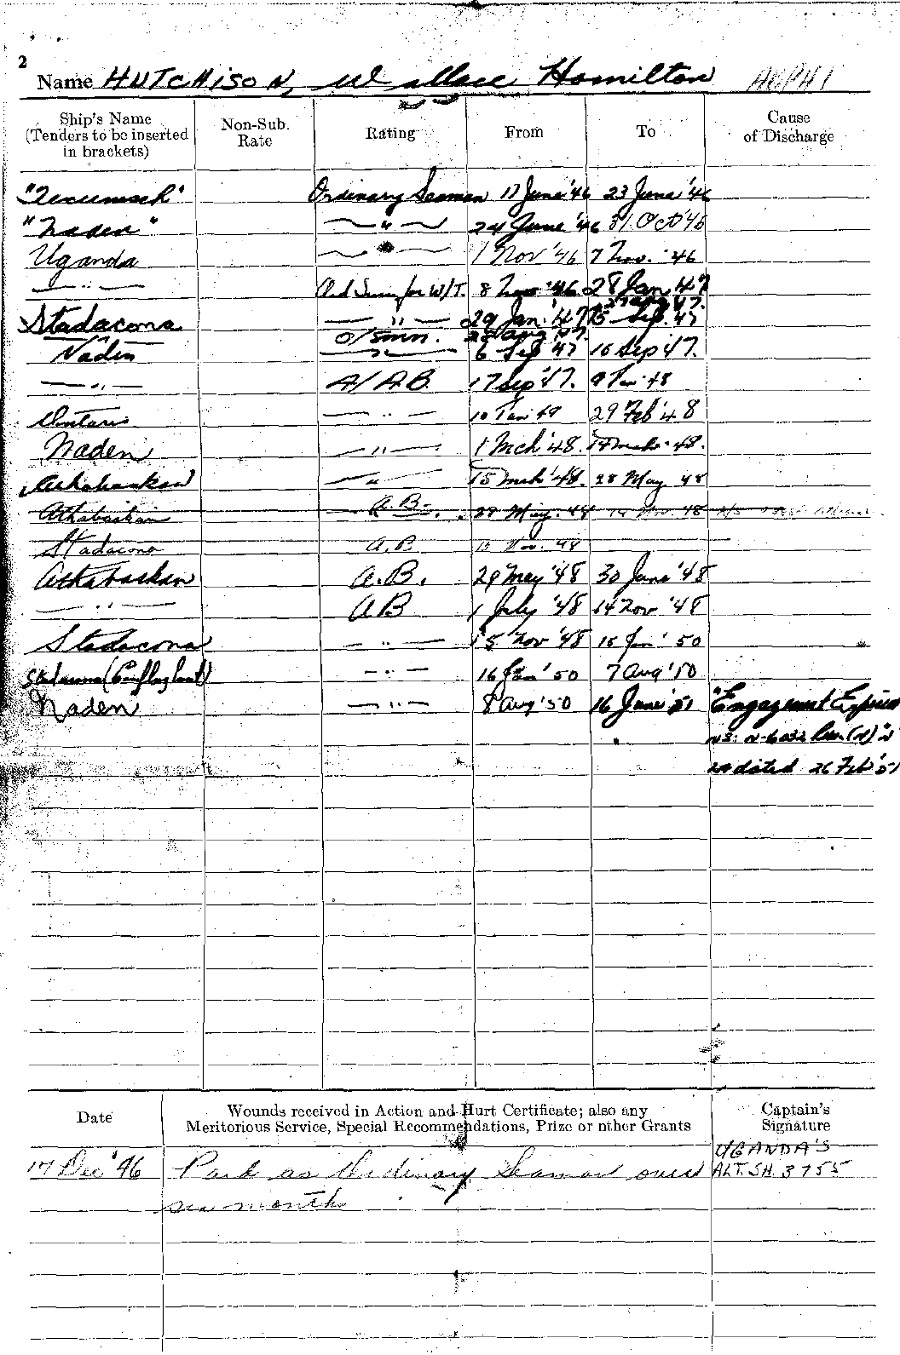 2
Name HUTCHISON, Wallace Hamilton
Ship's Name (Tenders to be inserted in brackets) Non-Sub. Rate Rating From To Cause of Discharge
"Tecumseh" Ordinary Seaman 17 June '46 23 June '46
"Naden" —〃— 24 June '46 31 Oct '46
Uganda —〃— 1 Nov '46 7 Nov. '46
—〃— Ord Smn for W/T. 8 Nov '46 28 Jan 47
Stadacona —〃— 29 Jan. '47 5 Sep. 47
O/Smn.
Naden —〃— 6 Sep '47 16 Sep '47.
—〃— A/AB. 17 Sep '47. 9 Jan 48
Ontario —〃— 10 Jan 49 29 Feb '48
Naden —〃— 1 Mch '48. 14 Mch. 48.
Athabaskan —〃— 15 Mch '48. 28 May 48
Athabaskan A.B. 29 May. 48 14 Nov. 48
Stadacona A.B 15 Nov. 48
Athabaskan A.B. 29 May '48 30 June '48
—〃— AB 1 July '48 14 Nov '48
Stadacona —〃— 15 Nov '48 15 Jan' 50
Stadacona —〃— 16 Jan' 50 7 Aug '50
Naden —〃— 8 Aug '50 16 June '51 "Engagement Expired
dated 26 Feb '51
Date Wounds received in Action and Hurt Certificate; also any Meritorious Service, Special Recommendations, Prize or other Grants Captain's Signature
17 Dec '46 Park as Ordinary Seaman over UGANDA'S ALT. SH. 3755
six months